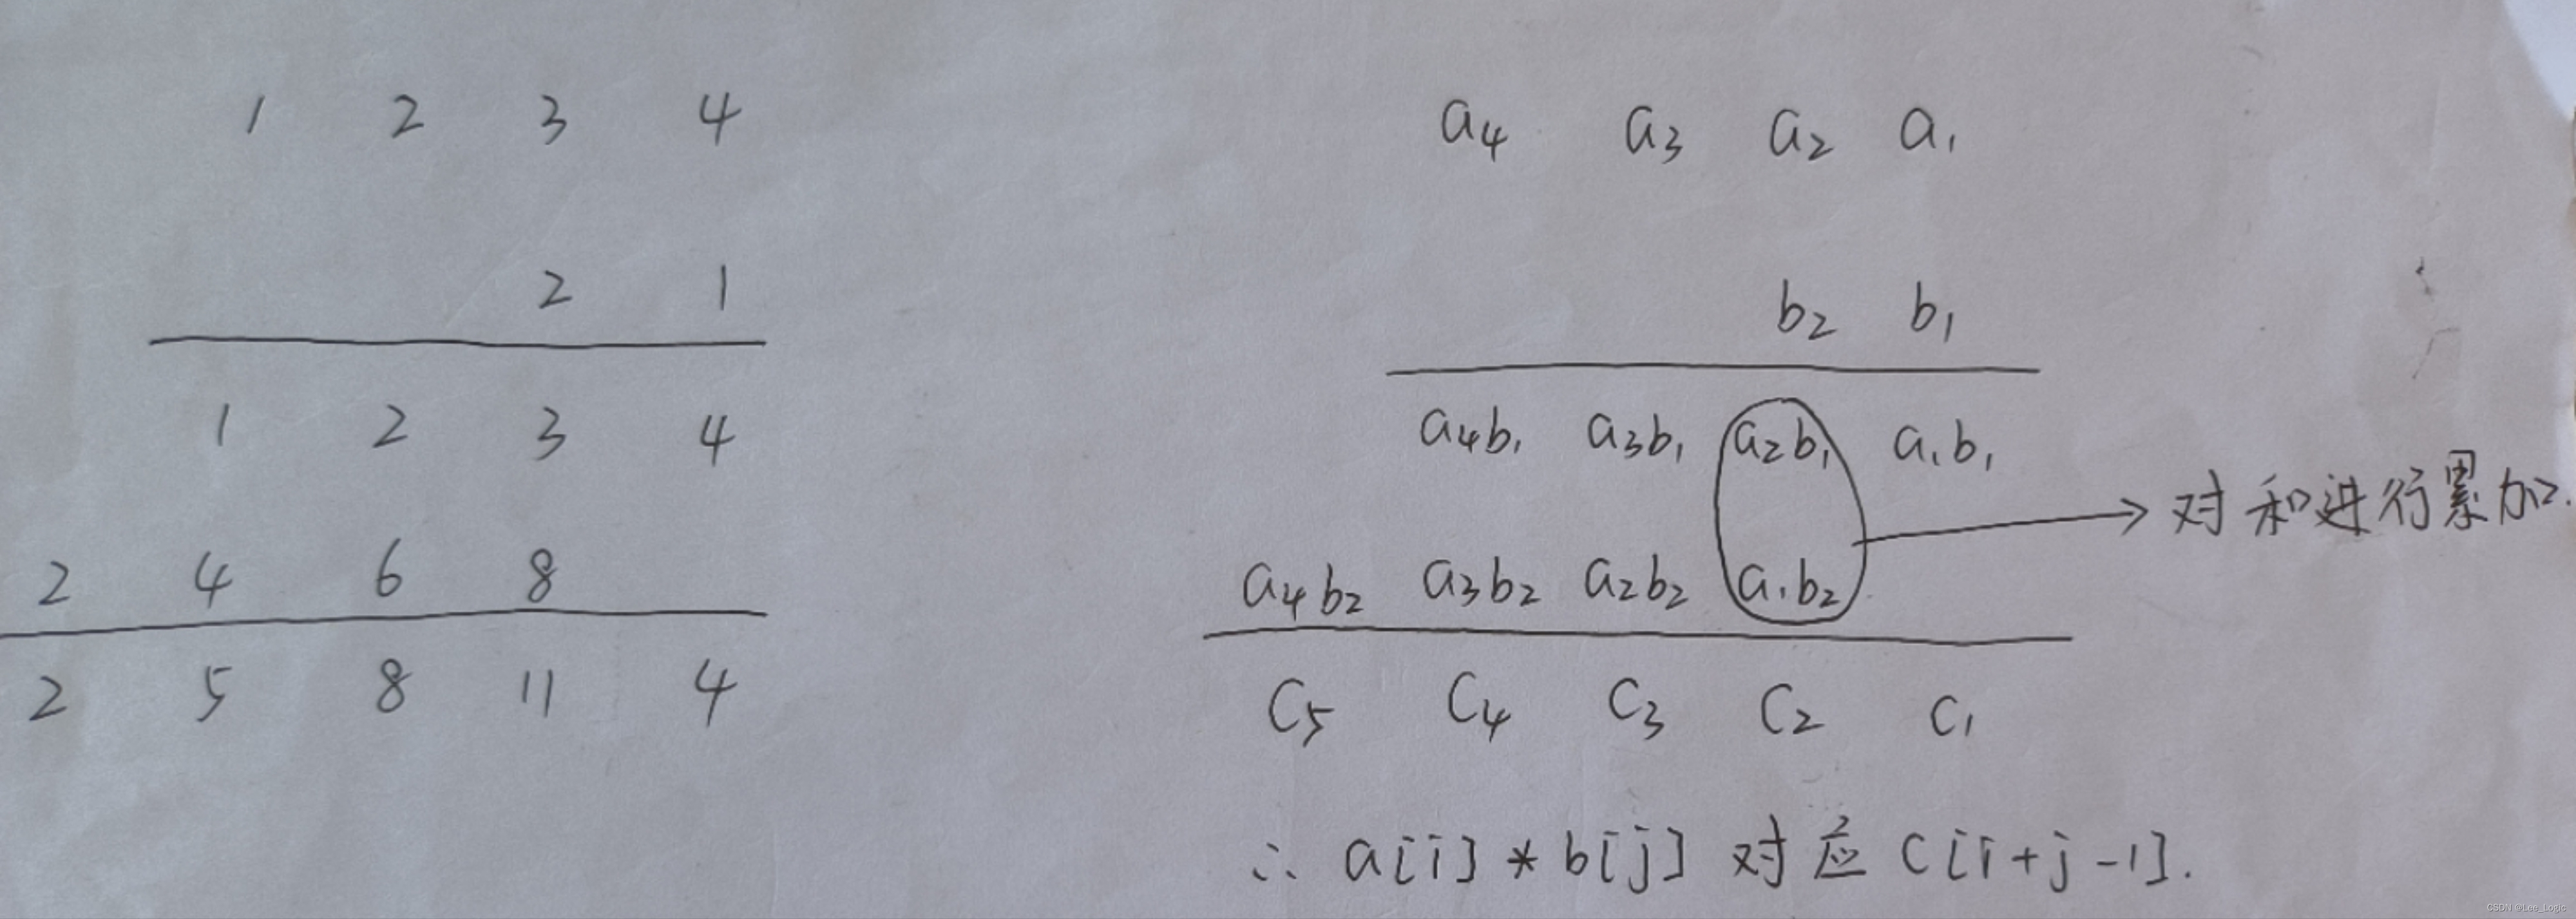 1 2 3 4
2 1
1 2 3 4
2 4 6 8
2 5 8 11 4
a4 a3 a2 a1
b2 b1
a4b1 a3b1 a2b1 a1b1
a4b2 a3b2 a2b2 a1b2
→ 对和进行累加.
C5 C4 C3 C2 C1
∴ a[i] * b[j] 对应 C[i+j-1].
CSDN @Lee_Logic